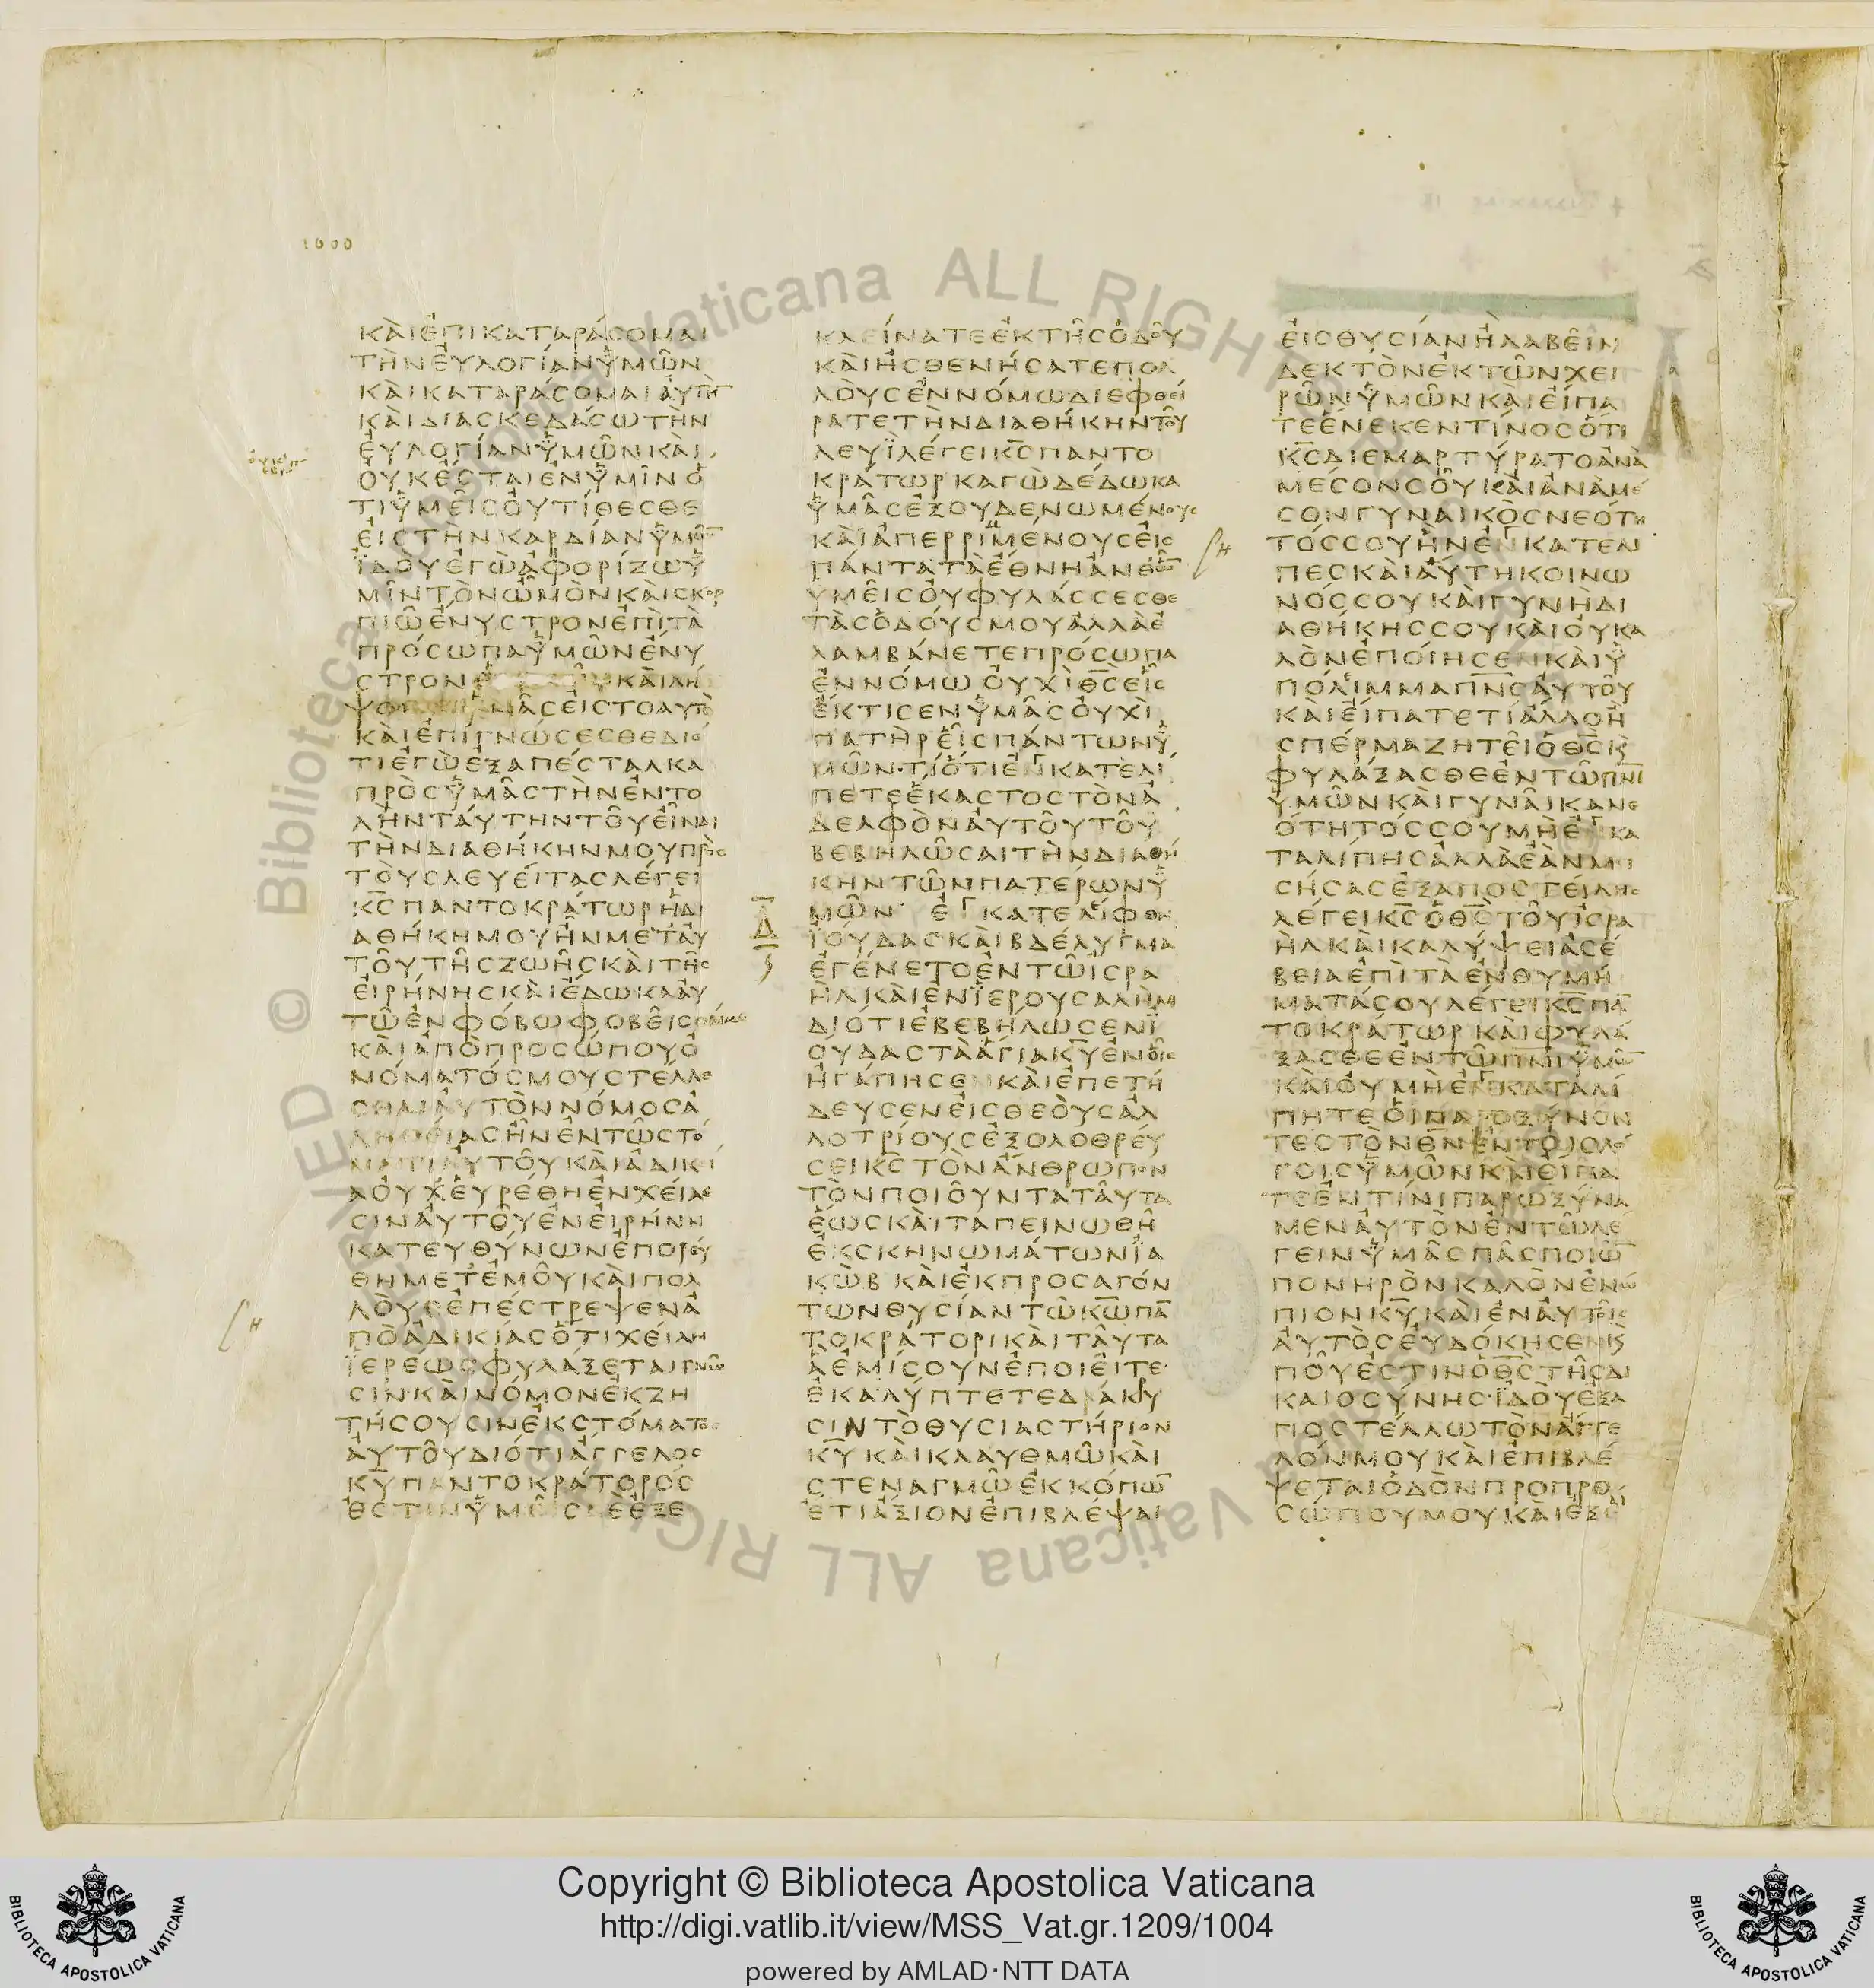 1000
ΚΑΙΕΠΙΚΑΤΑΡΑΣΟΜΑΙ
ΤΗΝΕΥΛΟΓΙΑΝΫΜΩΝ
ΚΑΙΚΑΤΑΡΑΣΟΜΑΙΑΥΤΗΝ
ΚΑΙΔΙΑΣΚΕΔΑΣΩΤΗΝ
ΕΥΛΟΓΙΑΝΫΜΩΝΚΑΙ
ΟΥΚΕΣΤΑΙΕΝΫΜΙΝΟ
ΤΙΫΜΕΙΣΟΥΤΙΘΕΣΘΕ
ΕΙΣΤΗΝΚΑΡΔΙΑΝΫΜΩ̅
ΪΔΟΥΕΓΩΑΦΟΡΙΖΩΫ
ΜΙΝΤΟΝΩΜΟΝΚΑΙΣΚΟΡ
ΠΙΩΕΝΥΣΤΡΟΝΕΠΙΤΑ
ΠΡΟΣΩΠΑΫΜΩΝΕΝΥ
ΣΤΡΟΝ ΚΑΙΛΗ
ΜΑΣΕΙΣΤΟΑΥΤΟ
ΚΑΙΕΠΙΓΝΩΣΕΣΘΕΔΙΟ
ΤΙΕΓΩΕΞΑΠΕΣΤΑΛΚΑ
ΠΡΟΣΫΜΑΣΤΗΝΕΝΤΟ
ΛΗΝΤΑΥΤΗΝΤΟΥΕΙΝΑΙ
ΤΗΝΔΙΑΘΗΚΗΝΜΟΥΠΡΟΣ
ΤΟΥΣΛΕΥΕΙΤΑΣΛΕΓΕΙ
Κ̅Σ̅ΠΑΝΤΟΚΡΑΤΩΡΗΔΙ
ΑΘΗΚΗΜΟΥΗΝΜΕΤΑΥ
ΤΟΥΤΗΣΖΩΗΣΚΑΙΤΗΣ
ΕΙΡΗΝΗΣΚΑΙΕΔΩΚΑΑΥ
ΤΩΕΝΦΟΒΩΦΟΒΕΙΣΘΑΙΜΕ
ΚΑΙΑΠΟΠΡΟΣΩΠΟΥΟ
ΝΟΜΑΤΟΣΜΟΥΣΤΕΛΛΕ
ΣΘΑΙΑΥΤΟΝΝΟΜΟΣΑ
ΛΗΘΕΙΑΣΗΝΕΝΤΩΣΤΟ
ΜΑΤΙΑΥΤΟΥΚΑΙΑΔΙΚΙ
ΑΟΥΧΕΥΡΕΘΗΕΝΧΕΙΛΕ
ΣΙΝΑΥΤΟΥΕΝΕΙΡΗΝΗ
ΚΑΤΕΥΘΥΝΩΝΕΠΟΡΕΥ
ΘΗΜΕΤΕΜΟΥΚΑΙΠΟΛ
ΛΟΥΣΕΠΕΣΤΡΕΨΕΝΑ
ΠΟΑΔΙΚΙΑΣΟΤΙΧΕΙΛΗ
ΪΕΡΕΩΣΦΥΛΑΞΕΤΑΙΓΝΩ
ΣΙΝ·ΚΑΙΝΟΜΟΝΕΚΖΗ
ΤΗΣΟΥΣΙΝΕΚΣΤΟΜΑΤΟΣ
ΑΥΤΟΥΔΙΟΤΙΑΓΓΕΛΟΣ
Κ̅Υ̅ΠΑΝΤΟΚΡΑΤΟΡΟΣ
ΕΣΤΙΝΫΜΕΙΣΔΕΕΞΕ
ΚΛΕΙΝΑΤΕΕΚΤΗΣΟΔΟΥ
ΚΑΙΗΣΘΕΝΗΣΑΤΕΠΟΛ
ΛΟΥΣΕΝΝΟΜΩΔΙΕΦΘΕΙ
ΡΑΤΕΤΗΝΔΙΑΘΗΚΗΝΤΟΥ
ΛΕΥΪΛΕΓΕΙΚ̅Σ̅ΠΑΝΤΟ
ΚΡΑΤΩΡΚΑΓΩΔΕΔΩΚΑ
ΫΜΑΣΕΞΟΥΔΕΝΩΜΕΝΟΥΣ
ΚΑΙΑΠΕΡΡΙΜΕΝΟΥΣΕΙΣ
ΠΑΝΤΑΤΑΕΘΝΗΑΝΘΩ̅
ΥΜΕΙΣΟΥΦΥΛΑΣΣΕΣΘΕ
ΤΑΣΟΔΟΥΣΜΟΥΑΛΛΑΕ
ΛΑΜΒΑΝΕΤΕΠΡΟΣΩΠΑ
ΕΝΝΟΜΩΟΥΧΙΘ̅Σ̅ΕΙΣ
ΕΚΤΙΣΕΝΫΜΑΣΟΥΧΙ
ΠΑΤΗΡΕΙΣΠΑΝΤΩΝΫ
ΜΩΝ·ΤΙΟΤΙΕΓΚΑΤΕΛΙ
ΠΕΤΕΕΚΑΣΤΟΣΤΟΝΑ
ΔΕΛΦΟΝΑΥΤΟΥΤΟΥ
ΒΕΒΗΛΩΣΑΙΤΗΝΔΙΑΘΗ
ΚΗΝΤΩΝΠΑΤΕΡΩΝΫ
Δ̅
ΜΩΝ· ΕΓΚΑΤΕΛΙΦΘΗ
ΪΟΥΔΑΣΚΑΙΒΔΕΛΥΓΜΑ
ΕΓΕΝΕΤΟΕΝΤΩΙΣΡΑ
ΗΛΚΑΙΕΝΪΕΡΟΥΣΑΛΗΜ
ΔΙΟΤΙΕΒΕΒΗΛΩΣΕΝΪ
ΟΥΔΑΣΤΑΑΓΙΑΚ̅Υ̅ΕΝΟΙΣ
ΗΓΑΠΗΣΕΝΚΑΙΕΠΕΤΗ
ΔΕΥΣΕΝΕΙΣΘΕΟΥΣΑΛ
ΛΟΤΡΙΟΥΣΕΞΟΛΟΘΡΕΥ
ΣΕΙΚ̅Σ̅ΤΟΝΑΝΘΡΩΠΟΝ
ΤΟΝΠΟΙΟΥΝΤΑΤΑΥΤΑ
ΕΩΣΚΑΙΤΑΠΕΙΝΩΘΗ
ΕΚΣΚΗΝΩΜΑΤΩΝΪΑ
ΚΩΒΚΑΙΕΚΠΡΟΣΑΓΟΝ
ΤΩΝΘΥΣΙΑΝΤΩΚ̅Ω̅ΠΑ̅
ΤΟΚΡΑΤΟΡΙΚΑΙΤΑΥΤΑ
ΑΕΜΙΣΟΥΝΕΠΟΙΕΙΤΕ·
ΕΚΑΛΥΠΤΕΤΕΔΑΚΡΥ
ΣΙΝΤΟΘΥΣΙΑΣΤΗΡΙΟΝ
Κ̅Υ̅ΚΑΙΚΛΑΥΘΜΩΚΑΙ
ΣΤΕΝΑΓΜΩΕΚΚΟΠΩ̅
ΕΤΙΑΞΙΟΝΕΠΙΒΛΕΨΑΙ
ΕΙΣΘΥΣΙΑΝΗΛΑΒΕΙΝ
ΔΕΚΤΟΝΕΚΤΩΝΧΕΙ
ΡΩΝΫΜΩΝΚΑΙΕΙΠΑ
ΤΕΕΝΕΚΕΝΤΙΝΟΣΟΤΙ
Κ̅Σ̅ΔΙΕΜΑΡΤΥΡΑΤΟΑΝΑ
ΜΕΣΟΝΣΟΥΚΑΙΑΝΑΜΕ
ΣΟΝΓΥΝΑΙΚΟΣΝΕΟΤΗ
ΤΟΣΣΟΥΗΝΕΓΚΑΤΕΛΙ
ΠΕΣΚΑΙΑΥΤΗΚΟΙΝΩ
ΝΟΣΣΟΥΚΑΙΓΥΝΗΔΙ
ΑΘΗΚΗΣΣΟΥΚΑΙΟΥΚΑ
ΛΟΝΕΠΟΙΗΣΕΝΚΑΙΫ
ΠΟΛΙΜΜΑΠ̅Ν̅Σ̅ΑΥΤΟΥ
ΚΑΙΕΙΠΑΤΕΤΙΑΛΛΟΗ
ΣΠΕΡΜΑΖΗΤΕΙΟΘ̅Σ̅Κ
ΦΥΛΑΞΑΣΘΕΕΝΤΩΠ̅Ν̅Ι̅
ΥΜΩΝΚΑΙΓΥΝΑΙΚΑΝΕ
ΟΤΗΤΟΣΣΟΥΜΗΕΓΚΑ
ΤΑΛΙΠΗΣΑΛΛΑΕΑΝΜΙ
ΣΗΣΑΣΕΞΑΠΟΣΤΕΙΛΗΣ
ΛΕΓΕΙΚ̅Σ̅ΟΘ̅Σ̅ΤΟΥΙΣΡΑ
ΗΛΚΑΙΚΑΛΥΨΕΙΑΣΕ
ΒΕΙΑΕΠΙΤΑΕΝΘΥΜΗ
ΜΑΤΑΣΟΥΛΕΓΕΙΚ̅Σ̅ΠΑ̅
ΤΟΚΡΑΤΩΡΚΑΙΦΥΛΑ
ΞΑΣΘΕΕΝΤΩΠ̅Ν̅Ι̅ΫΜΩ̅
ΚΑΙΟΥΜΗΕΓΚΑΤΑΛΙ
ΠΗΤΕΟΙΠΑΡΟΞΥΝΟΝ
ΤΕΣΤΟΝΘ̅Ν̅ΕΝΤΟΙΣΛΟ
ΓΟΙΣΫΜΩΝΚΑΙΕΙΠΑ
ΤΕΕΝΤΙΝΙΠΑΡΩΞΥΝΑ
ΜΕΝΑΥΤΟΝΕΝΤΩΛΕ
ΓΕΙΝΫΜΑΣΠΑΣΠΟΙΩ̅
ΠΟΝΗΡΟΝΚΑΛΟΝΕΝΩ
ΠΙΟΝΚ̅Υ̅ΚΑΙΕΝΑΥΤΟΙΣ
ΑΥΤΟΣΕΥΔΟΚΗΣΕΝΚ
ΠΟΥΕΣΤΙΝΟΘ̅Σ̅ΤΗΣΔΙ
ΚΑΙΟΣΥΝΗΣ·ΪΔΟΥΕΞΑ
ΠΟΣΤΕΛΛΩΤΟΝΑΓΓΕ
ΛΟΝΜΟΥΚΑΙΕΠΙΒΛΕ
ΨΕΤΑΙΟΔΟΝΠΡΟΠΡΟ
ΣΩΠΟΥΜΟΥΚΑΙΕΞΕ
© Biblioteca Vaticana ALL RIGHTS RESERVED
Copyright © Biblioteca Apostolica Vaticana
http://digi.vatlib.it/view/MSS_Vat.gr.1209/1004
powered by AMLAD·NTT DATA
BIBLIOTECA APOSTOLICA VATICANA
BIBLIOTECA APOSTOLICA VATICANA